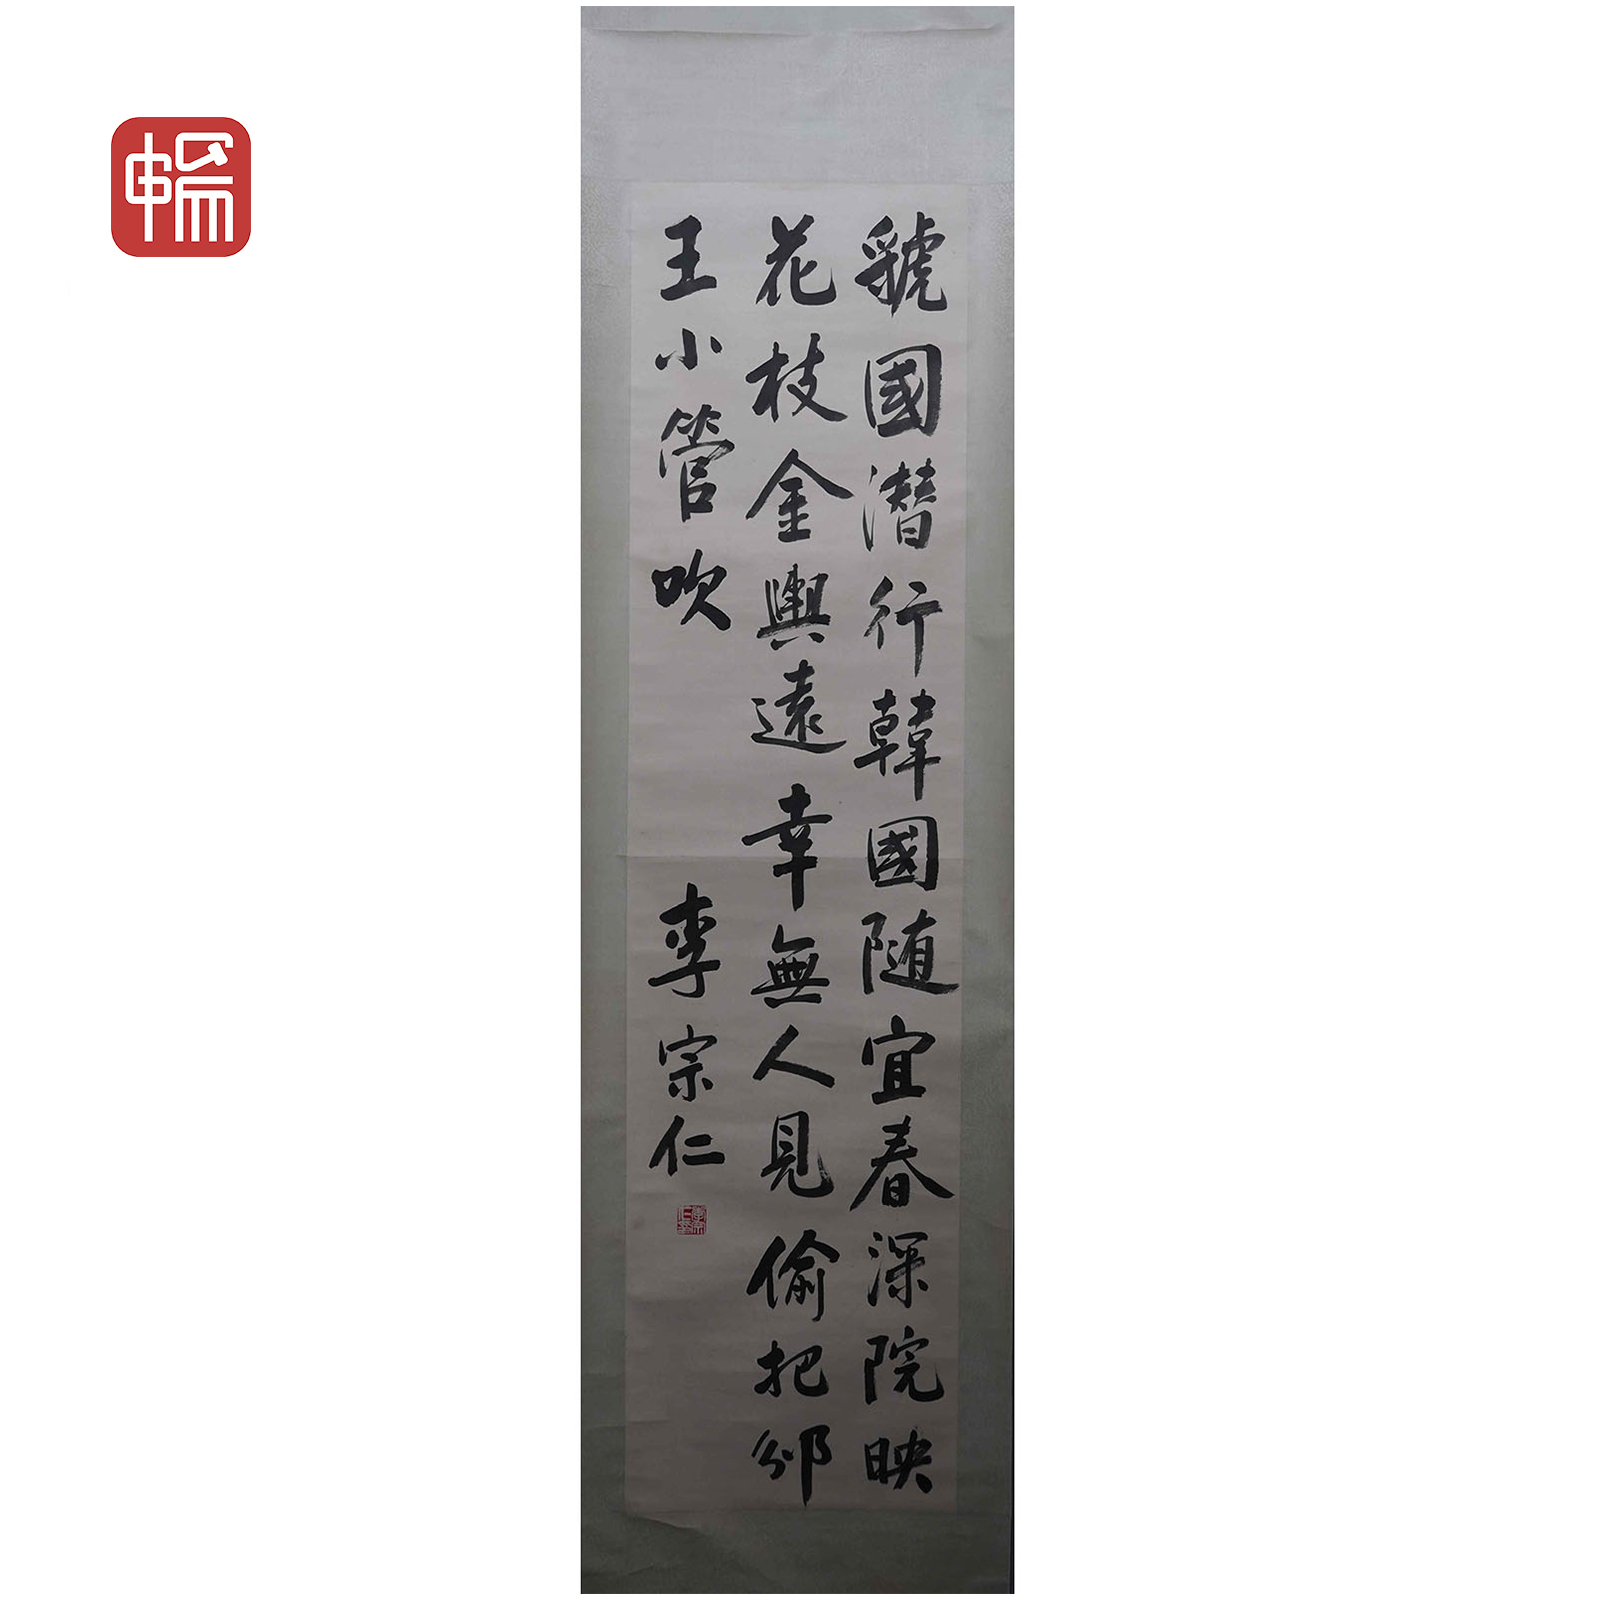 虢國潜行韓國随宜春深院映
花枝金輿遠幸無人見偷把邠
王小管吹
李宗仁